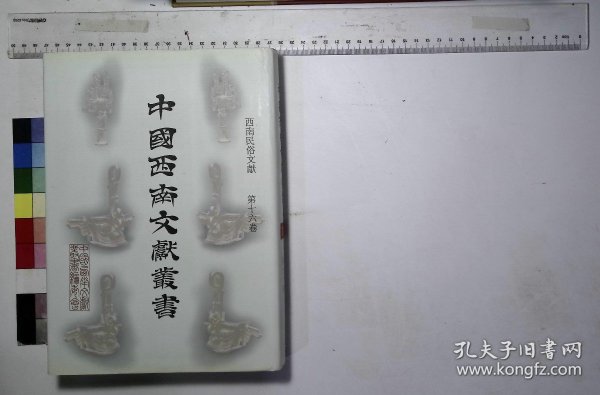 西南民俗文獻 第十六卷
中國西南文獻叢書
孔夫子旧书网
www.kongfz.com